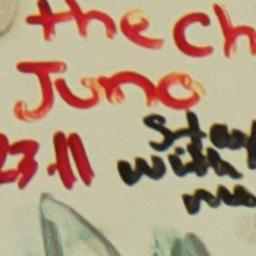 the Ch
Juno
23.11
Stay
with